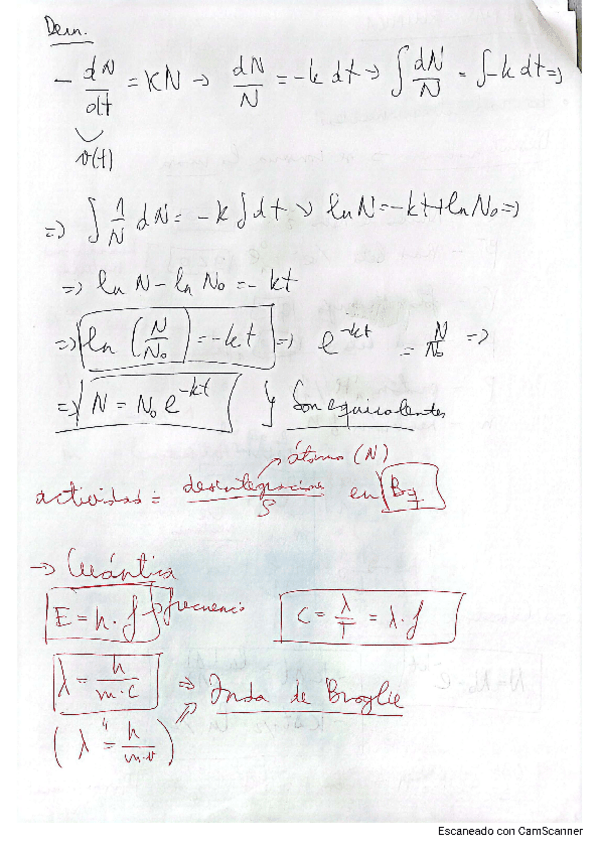 Dem.
- dN/dt = KN → dN/N = -k dt → ∫ dN/N = ∫ -k dt ⇒
v(t)
⇒ ∫ 1/N dN = -k ∫ dt → ln N = -kt + ln N₀ ⇒
⇒ ln N - ln N₀ = -kt
⇒ ln (N/N₀) = -kt ⇒ e^-kt = N/N₀ ⇒
⇒ N = N₀ e^-kt } Son equivalentes
átomo (N)
actividad = desintegracione/s en Bq
→ Cuántica
E = h · f → frecuenci
C = λ/T = λ · f
λ = h/m·c ⇒ Onda de Broglie
(λ = h/m·v)
Escaneado con CamScanner